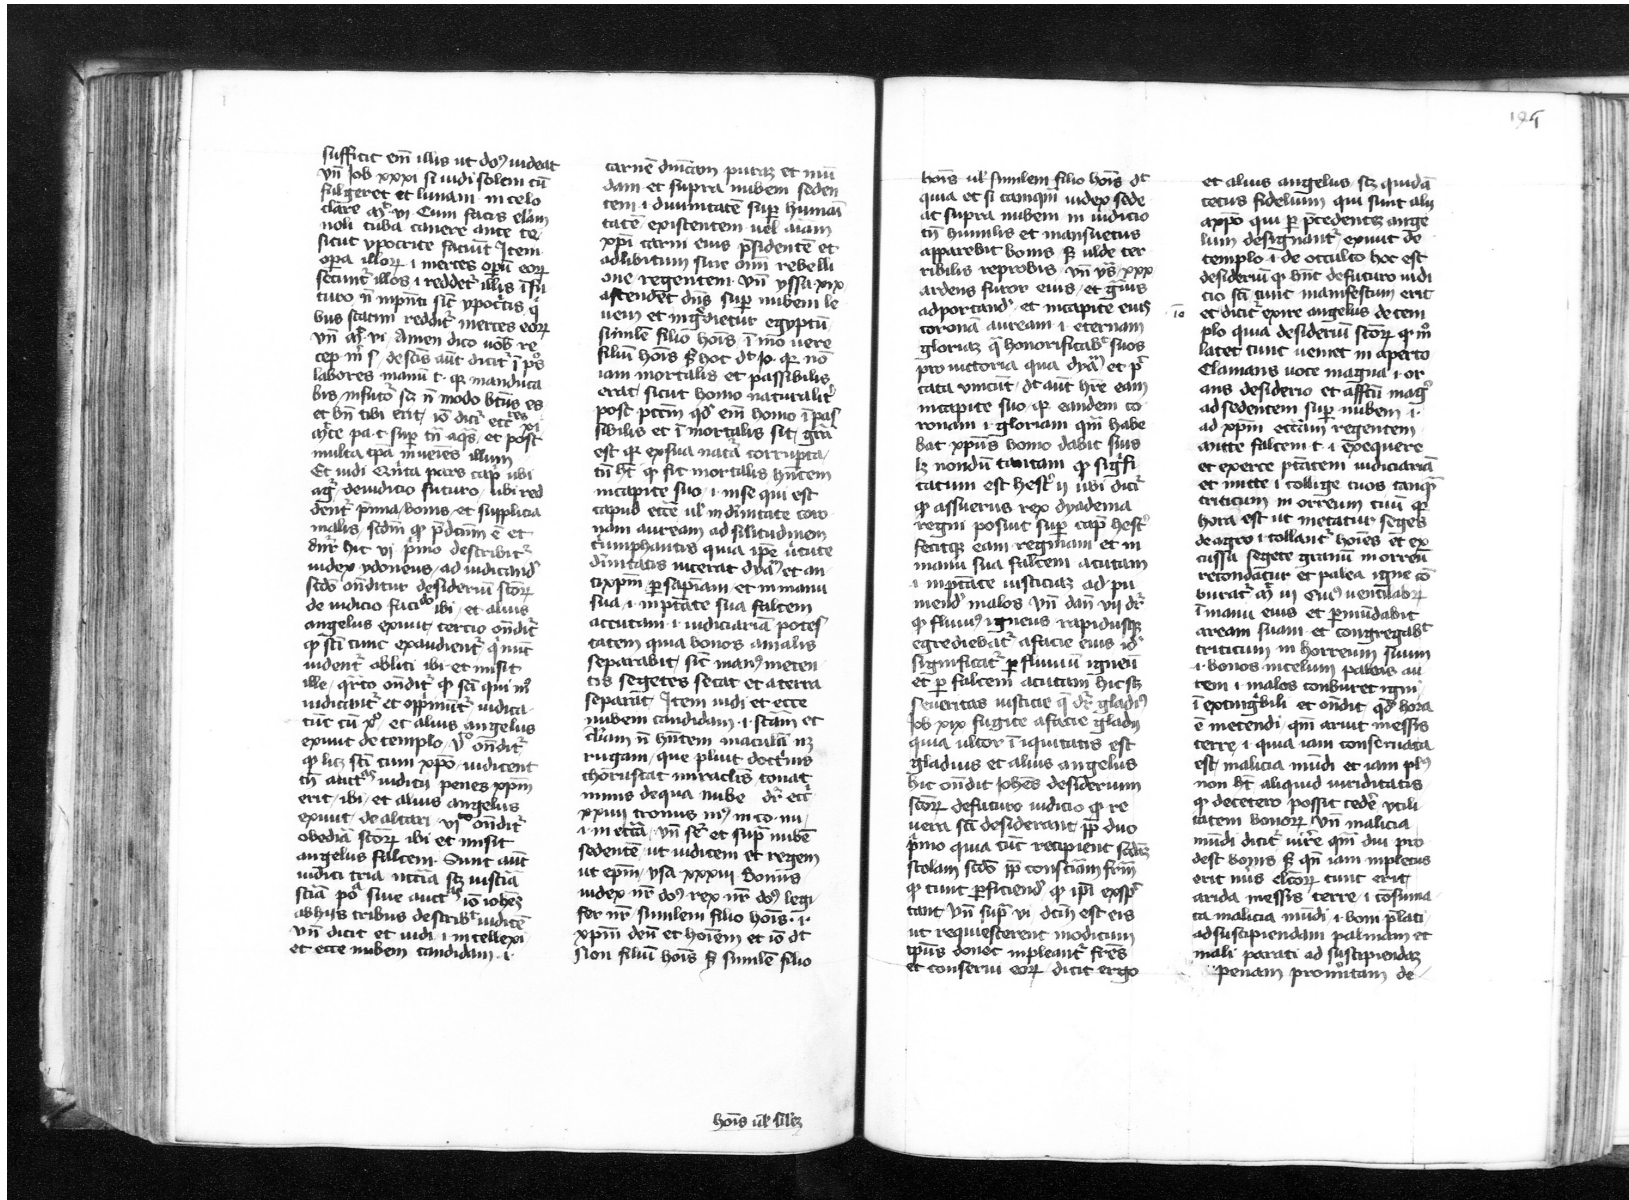 sufficit em̄ illis ut do᷒ uideat
vn̄ Job xxxi si uidi solem cū
fulgeret et lunam in celo
clare mͭ vi Cum facis elām
noli tuba canere ante te
sicut ypocrite faciūt Item
opa illoꝝ i mertes opū eoꝝ
secūt͛ illos i reddet͛ illis ī fu
turo n̄ inp̄nti sic̄ ypoc̓tis q̓
bus statim reddit͛ merces eoꝝ
vn̄ mͭ vi Amen dico uob̄ re
cep m̄ s de scīs aūt dicit͛ ī ps̓
labores manū t qꝛ manduca
bis infuto sꝫ n̄ modo bt̄us es
et bn̄ tibi erit iō dicͭ ecc̄ xi
mitte pa t sup tn̄ aqͣs et post
multa tp̄a inuenies illum
Et uidi Qͥnta pars cap̓ ubi
agͭ de iudicio futuro ubi red
dent͛ p̓mia bonis et supplicia
malis scd̄m qꝫ p̄dcm̄ ē et
dn̄r hic vi p̓mo describit͛
iudex ydoneus ad iudicand̓
scd̄o ōndit͛ desideriū sc̄oꝝ
de iudicio faciēdo ibi et alius
angelus exiuit tercio ōndit͛
qꝫ sc̄i tunc exaudient͛ q̓ nūc
uident͛ abliti ibi et misit
ille qͣrto ōndit͛ qꝫ sc̄i qui m̊
iudicant͛ et opp̓mūt͛ iudica
tūt cū xͦ et alius angelus
exiuit de templo vͦ ōndit͛
qꝫ licꝫ sc̄i cum xp̄o iudicent
tn̄ auctͣs iudicii penes xp̄m
erit ibi et alius angelus
exiuit de altari viͦ ōndit͛
obediā sc̄oꝝ ibi et misit
angelus falcem Sunt aūt
iudici tria nc̄cia scꝫ iusticiā
sciā poͣ siue auctͣs iō ioh̄es
ab hiis tribus describͭ iudicē
vn̄ dicit et uidi i intellexi
et ecce nubem candidam i
carnē dm̄cam putaꝫ et mū
dam et supra nubem seden
tem i diuinitatē sup humāi
tatē existentem uel aīam
xp̄i carni eius p̄sidentē et
ad libitum sue om̄i rebelli
one regentem vn̄ yssa xix
ascendet dn̄s sup nubem le
uem et ingͥdietur egyptū
similē filio hoīs ī mo vere
filiū hoīs sꝫ hoc dͭ Jo qꝛ nō
iam mortalis et passibilis
erat sicut homo naturalit̓
post pcc̄m qd̓ em̄ homo ī pas
sibilis et ī mortalis sit gr̄a
est qꝛ ex sua natͣ corrupta
tn̄ hͭ qꝫ sit mortalis hn̄tem
incapite suo i inse qui est
capud ecc̄e ul̓ indiuitate coro
nam auream ad silitudinem
tͥumphantis quia ip̄e ūtute
diuitatis uicerat dyaͫ et an
tixp̄m p sapīam et in manu
sua i inptāte sua falcem
accutam i iudiciariā potes
tatem quia bonos amalis
separabit sic̄ man᷒ meten
tis segetes secat et a terra
separāt Item uidi et ecce
nubem candidam i scām et
claͫ n̄ hn̄tem maculā nꝫ
rugam que pluit doctͥnis
choruscat miraclis tonat
minis de qua nube dr̄ ecc̄
xxiiii tronus m᷒ in co nu
i in ecc̄a vn̄ sr̄ et sup̄ nubē
sedentē ut iudicem et regem
ut ep̄m ysa xxxiii Domi᷒
iudex nr̄ do᷒ rex nr̄ do᷒ legi
fer nr̄ similem filio hoīs i
xp̄m deū et hoīem et iō dͭ
sion filiū hoīs sꝫ similē filio
hoīs ul̓ sīleꝫ
195
hoīs ul̓ similem filio hoīs dͭ
quia et si tamqͫ iudex sede
at supra nubem in iudicio
tn̄ humilis et mansuetus
apparebit bonis sꝫ ualde ter
ribilis reprobis vn̄ ys̄ xxx
ardens furor eius et gͣuis
ad portand̓ et in capite eius
coronā auream i eternam
gloriaꝫ q̄ honorificabͭ suos
pro uictoria qua dyaͫ et pͥ
cata vincūt dͭ aūt hr̄e eam
incapite suo qꝛ eandem co
ronam i gloriam qm̄ habe
bat xp̄us homo dabit suis
lꝫ nondū tantam qꝫ sigͥfi
catum est hestͬ ii ubi dicͭ
qꝫ assuerus rex dyadema
regni posuit sup cap̓ hestͬ
fecitqꝫ eam reginam et in
manu sua falcem acutam
i inptāte iusticiaꝫ ad pu
niend̓ malos vn̄ dan̄ vii dr̄
qꝫ fluui᷒ igneus rapidusqꝫ
egrediebat͛ afacie eius id̓
significat͛ p fluuiū igneū
et p falcem acutam hic scꝫ
seueritas iusticie q̄ dr̄ gladi᷒
Job xix fugite afacie gladij
quia ultor īiquitatis est
gladius et alius angelus
hic ōndit Joh̄es desiderium
sc̄oꝝ de futuro iudicio qꝫ re
vera sc̄i desiderant pp̄ duo
p̓mo quia tūc recipient scd̄aꝫ
stolam scd̄o pp̄ consciam frm̄
qꝫ tunc pficiend̓ qꝫ ip̄i exspͨ
tant vn̄ sup̄ vi dcm̄ est eis
ut requiescerent modicum
tp̄us donec inpleant͛ frēs
et conserui eoꝝ dicit ergo
iō
et alius angelus scꝫ quidā
cetus fidelium qui sunt alij
axp̄o qui p p̄cedenteꝫ ange
lum designant͛ exiuit de
templo i de occulto hoc est
desideriū qꝫ hn̄t de futuro iudi
cio sc̄i tunc manifestum erit
et dicͭ exire angelus de tem
plo quia desideriū sc̄oꝝ qꝫ m̊
latet tunc veniet in aperto
Clamans uoce magna i or
ans desiderio et affc̄u mag͛
ad sedentem sup nubem i
ad xp̄m ecc̄iam regentem
mitte falcem t i exequere
et exerce ptātem iudiciariā
et mitte i collige tuos tanqͫ
triticum in orreum tuū qꝛ
hora est ut metatur seges
de agro i tollant͛ hoīes et ex
cussa segete granū in orreū
recondatur et palea igne cō
burat͛ mͭ iii Cui᷒ uentilabꝝ
ī manu eius et pmūdabit
aream suam et congregabͭ
triticum in horreum suum
i bonos in celum paleas au
tem i malos conburet igni
ī extingͥbili et ōndit qd̓ hora
ē metendi qm̄ aruit messis
terre i quia iam conseruata
est malicia mūdi et iam pl᷒
non hͭ aliquid uiriditatis
qꝫ decetero possit cedē utili
tatem bonoꝝ vn̄ malicia
mūdi dicͭ uir̄e qm̄ diu pro
dest bonis sꝫ qn̄ iam inpletus
erit nu᷒ elc̄oꝝ tunc erit
arida messis terre i cōsuma
ta malicia mūdi i boni plati
ad suscipiendam palmam et
mali parati ad suscipiendaꝫ
penam promͥtam de